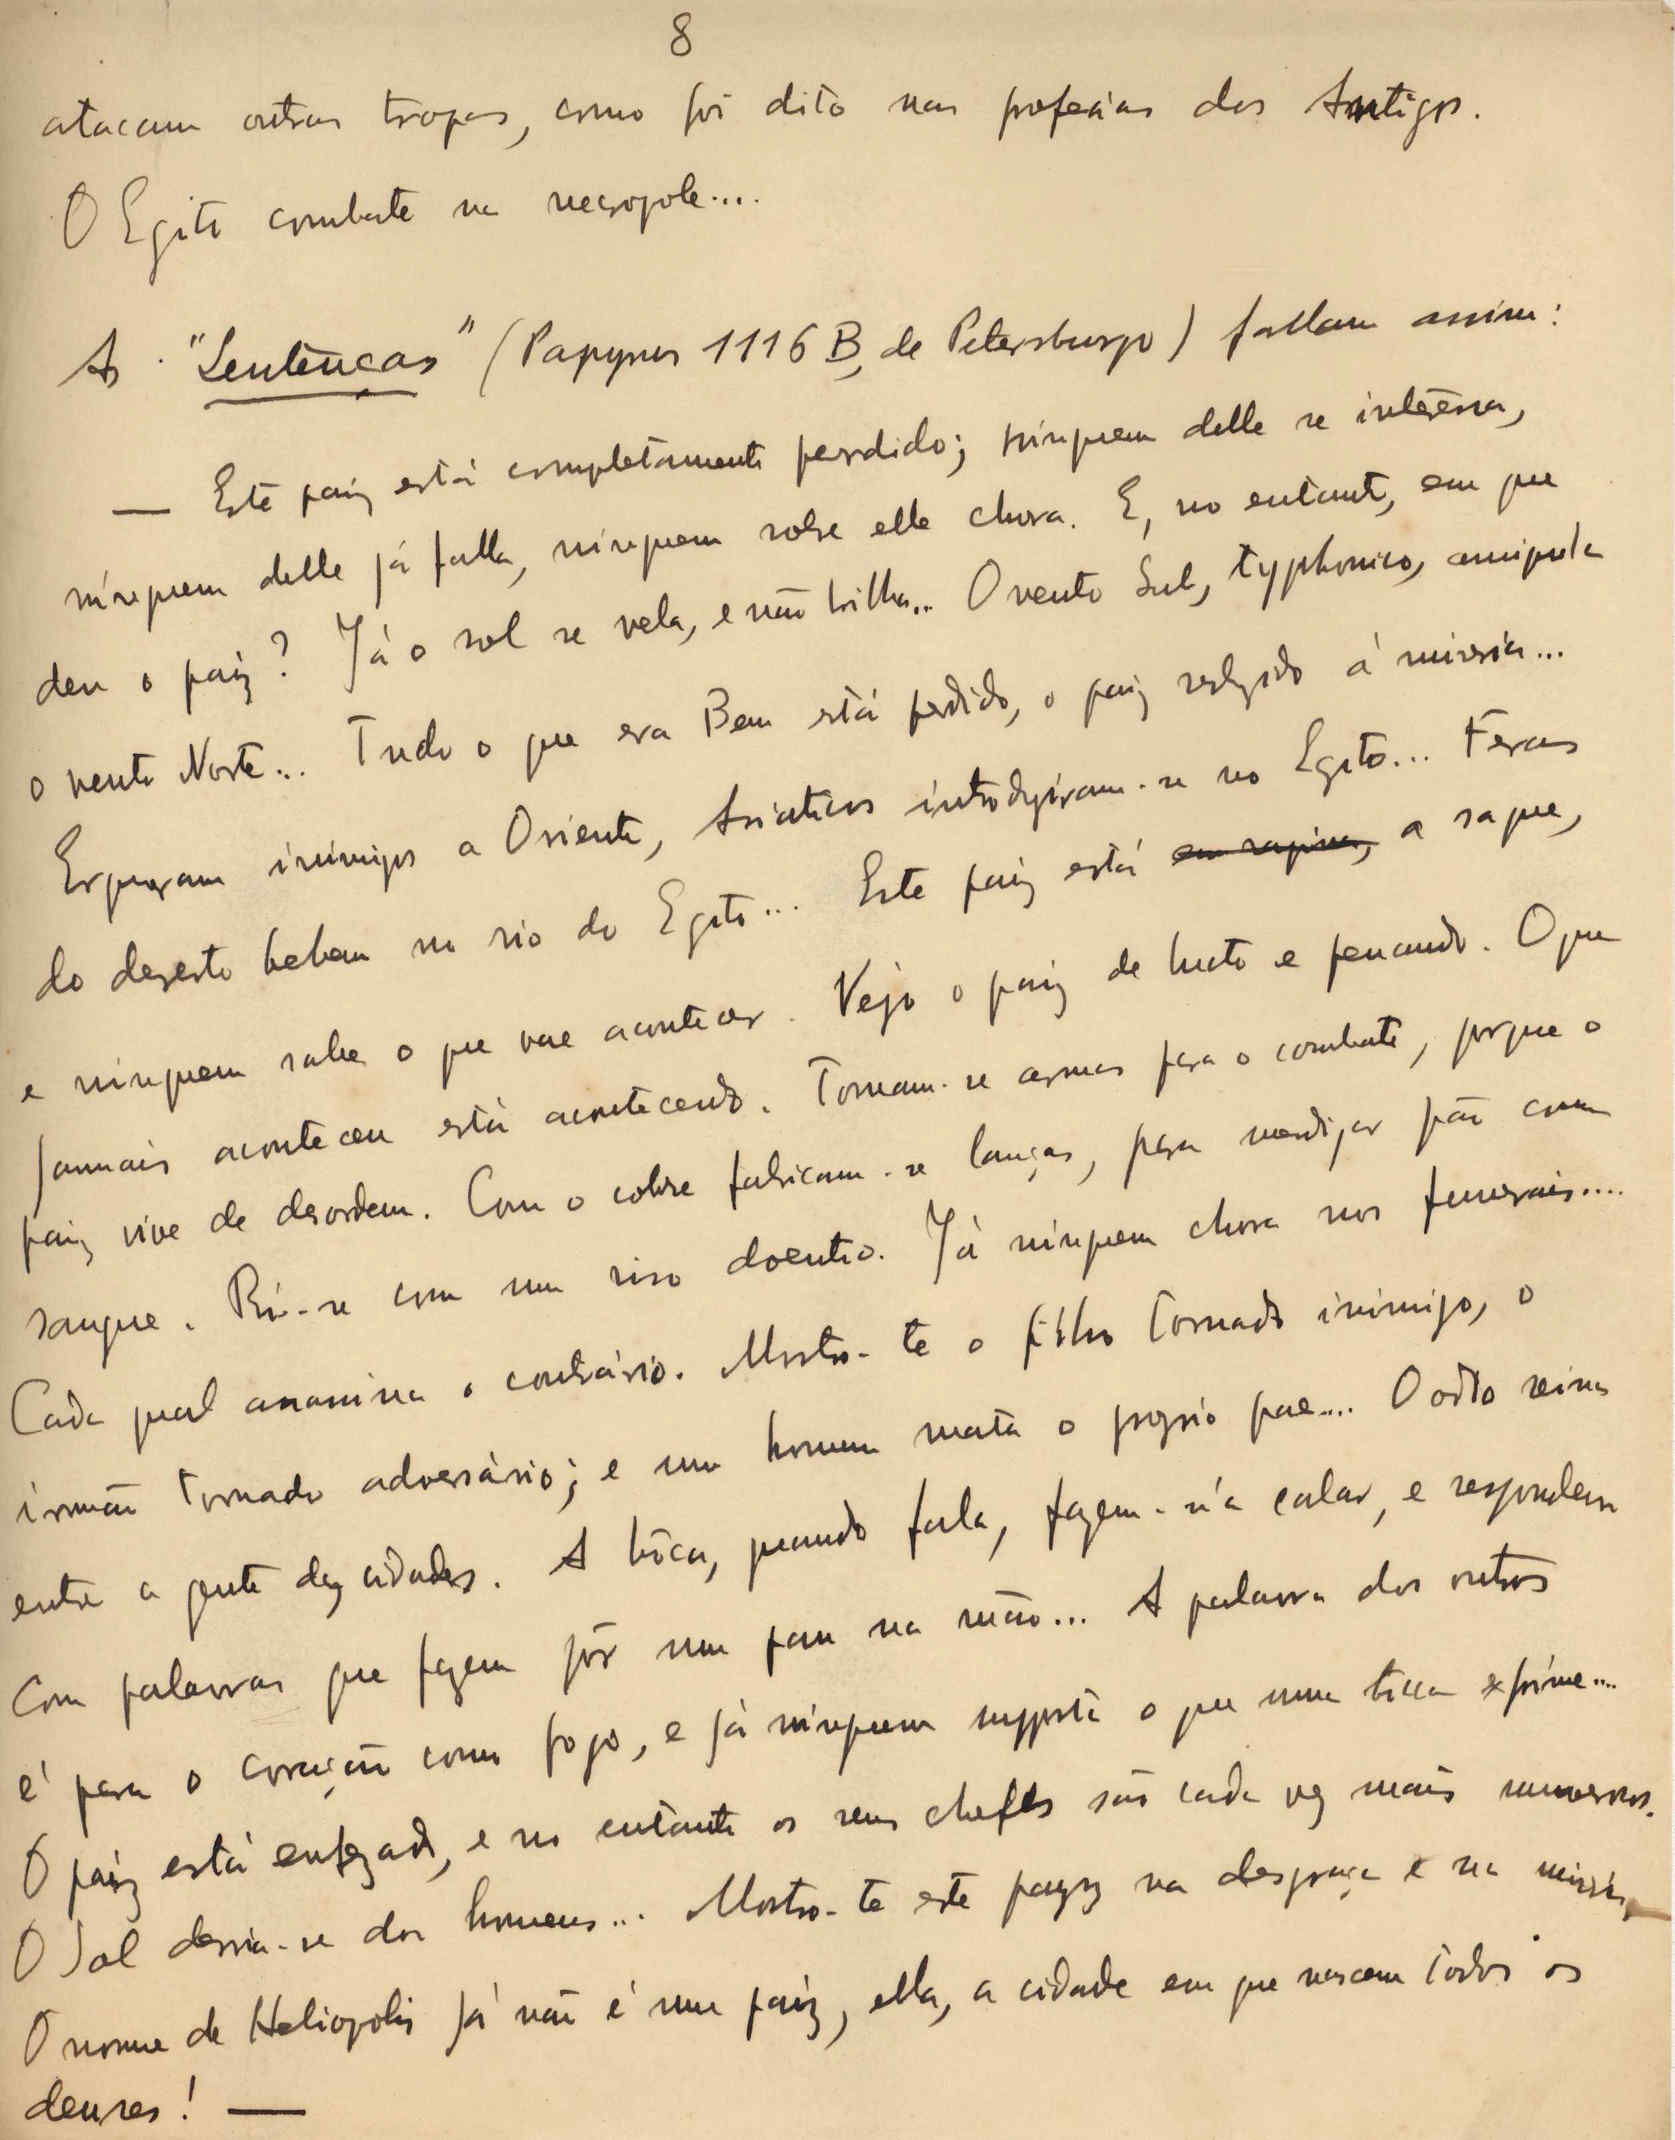 8
atacam outras tropas, como foi dito nas profecias dos Antigos.
O Egito combate na necropole....
As "Sentenças" (Papyrus 1116 B, de Petersburgo) fallam assim:
— Este paiz está completamente perdido; ninguem delle se interessa,
ninguem delle já falla, ninguem sobre elle chora. E, no entanto, em que
deu o paiz? Já o sol se vela, e não brilha... O vento Sul, typhonico, aniquila
o vento Norte... Tudo o que era Bem está perdido, o paiz reduzido á miseria...
Ergueram inimigos a Oriente, Asiaticos introduziram-se no Egito... Feras
do dezerto bebem no rio do Egito... Este paiz está em rapina, a saque,
e ninguem sabe o que vae acontecer. Vejo o paiz de luto e penando. O que
jamais aconteceu está acontecendo. Tomam-se armas para o combate, porque o
paiz vive de desordem. Com o cobre fabricam-se lanças, para mendigar pão com
sangue. Ri-se com um riso doentio. Já ninguem chora nos funerais....
Cada qual assassina o contrário. Mostro-te o filho tornado inimigo, o
irmão tornado adversário; e um homem mata o proprio pae.... O odio reina
entre a gente das cidades. A bôca, quando fala, fazem-n'a calar, e respondem
com palavras que fazem pôr um pau na mão... A palavra dos outros
é para o coração como fogo, e já ninguem supporta o que uma bocca exprime....
O paiz está enfezado, e no entanto os seus chefes são cada vez mais numerosos.
O Sol desvia-se dos homens... Mostro-te este payz na desgraça e na miséria,
O nome de Heliopolis já não é um paiz, ella, a cidade em que nascem todos os
deuses! —